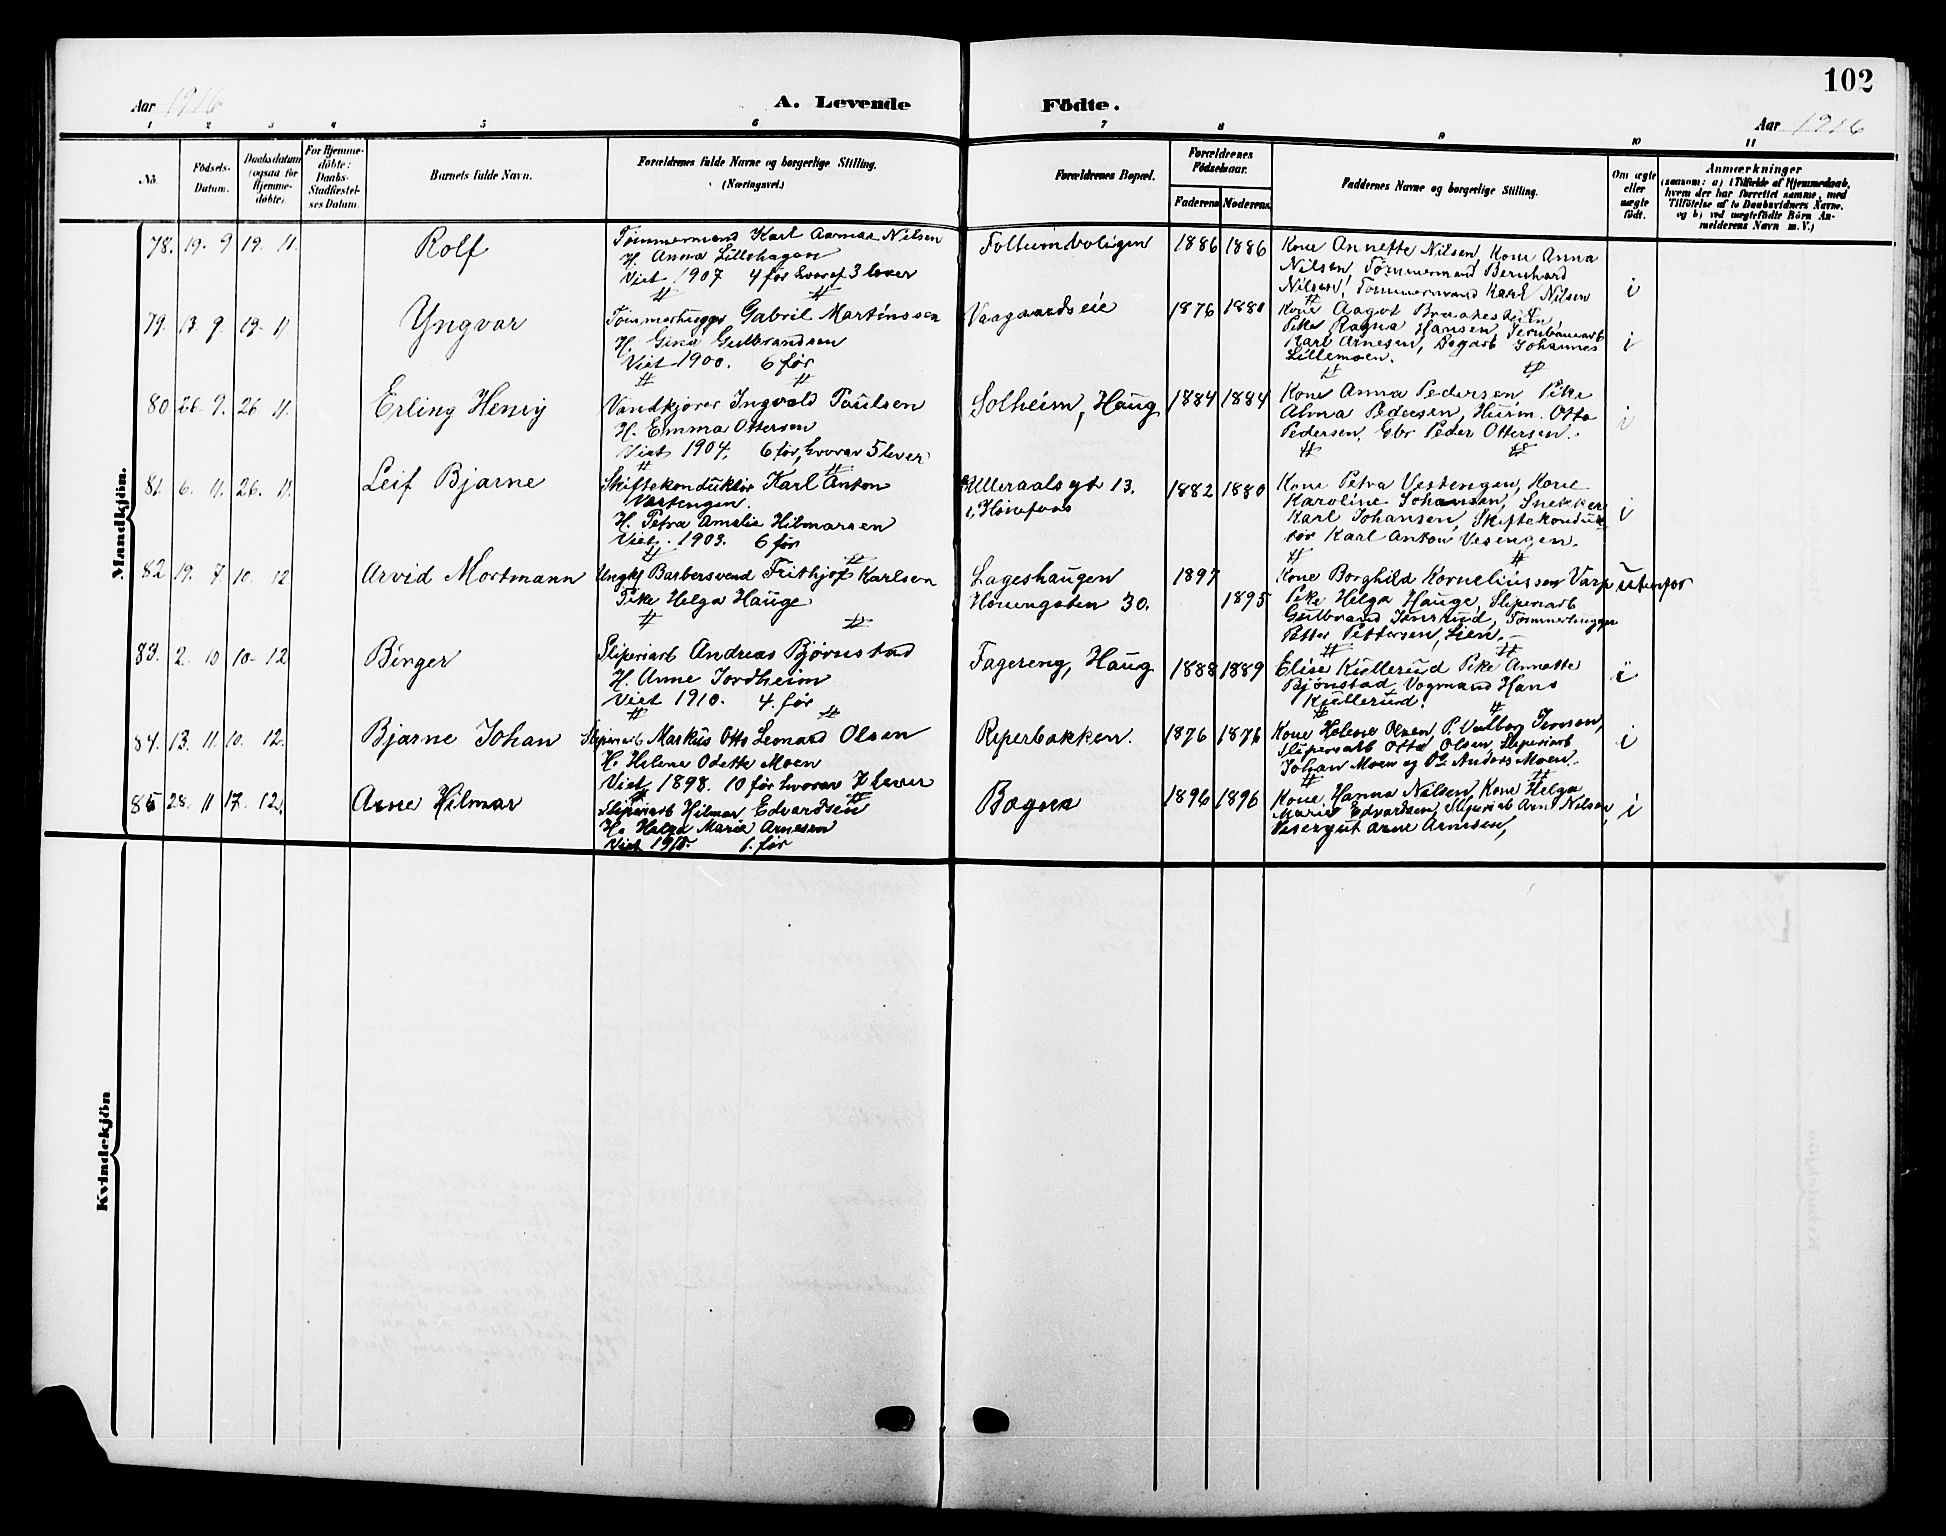 102
Aar 1916
A. Levende Födte.
Aar 1916
1 2 3 4 5 6 7 8 9 10 11
No.
Födsels-
Datum.
Daabsdatum
(ogsaa for
Hjemme-
döbte)
For Hjemme-
döbte:
Daabs-
Stadfæstel-
ses Datum.
Barnets fulde Navn.
Forældrenes fulde Navne og borgerlige Stilling.
(Næringsvei.)
Forældrenes Bopæl.
Forældrenes
Födselsaar.
Faderens Moderens
Faddernes Navne og borgerlige Stilling.
Om ægte
eller
uægte
födt.
Anmærkninger
(saasom: a) i Tilfælde af Hjemmedaab,
hvem der har forrettet samme, med
Tilföielse af to Daabsvidners Navne,
og b) ved uægtefödte Börn An-
melderens Navn m. V.)
Mandkjön.
78. 19. 9 19. 11. Rolf
Tømmermand Karl Aarnas Nilsen
H. Anna Lillehagen
Viet 1907 4 før hvoraf 3 lever
Follumboligen 1886 1886
Kone Annette Nilsen, Kone Anna
Nilsen, Tømmermand Bernhard
Nilsen, Tømmermand Karl Nilsen
i
79. 13. 9. 19. 11 Yngvar
Tømmerhugger Gabril Martinssen
H. Gina Gulbrandsen
Viet 1900. 6 før
Vaagaardseie 1876 1880
Kone Aagot
Pike Ragna Hansen, Jernbanearb
Karl Arnesen, Dagarb Johannes
Lillemoen.
i
80 26. 9. 26 11. Erling Henry
Vandkjører Ingvald Paulsen
H. Emma Ottersen
Viet 1904, 6 før, hvorav 5 lever
Solheim, Haug 1884 1884
Kone Anna Pedersen, Pike
Alma Pedersen, Husm. Otto
Pedersen, Gbr Peder Ottersen.
i
81. 6. 11. 26. 11. Leif Bjarne
Skiftekonduktør Karl Anton
Vestengen.
H. Petra Amalie Hilmarsen
Viet. 1903. 6 før
Ulleraalsgt 13.
i Hønefoss 1882 1880
Kone Petra Vestengen, Kone
Karoline Johansen, Snekker
Karl Johansen, Skiftekonduk
tør Karl Anton Vesengen.
i
82 19. 7. 10. 12 Arvid Mortmann
Ungk/ Barbersvend Frithjof Karlsen
Pike Helga Hauge
Lageshaugen
Hønengaten 30. 1897 1895
Kone Borghild Korneliussen Varp
Pike Helga Hauge, Sliperiarb
Gulbrand Jonsrud, Tømmerhugger
Petter Pettersen, Lien.
utenfor
83. 2. 10 10. 12 Birger
Sliperiarb Andreas Bjørnstad
H. Anne Jordheim
Viet 1910. 4. før
Fagereng, Haug 1888 1889
Elise Kjellerud Pike Annette
Bjønstad, Vogmand Hans
Kjellerud.
i
84. 13. 11. 10. 12. Bjarne Johan
Sliperiarb Markus Otto Leonard Olsen
H. Helene Odette Moen
Viet 1898. 10 før hvorav 7 lever
Reperbakken. 1876 1876
Kone Helene Olsen, P. Valborg Jensen,
Sliperiarb Otto Olsen, Sliperiarb
Johan Moen og Ol. Anders Moen.
i
85 28. 11 17. 12. Arne Hilmar
Sliperiarb Hilmar Edvardsen
H. Helga Marie Arnesen
Viet 1915. 1. før
Bægna 1896 1896
Kone Hanna Nilsen, Kone Helga
Marie Edvardsen, Sliperiarb Arne Nilsen,
Visergut Arne Arnesen,
i
Kvindekjön